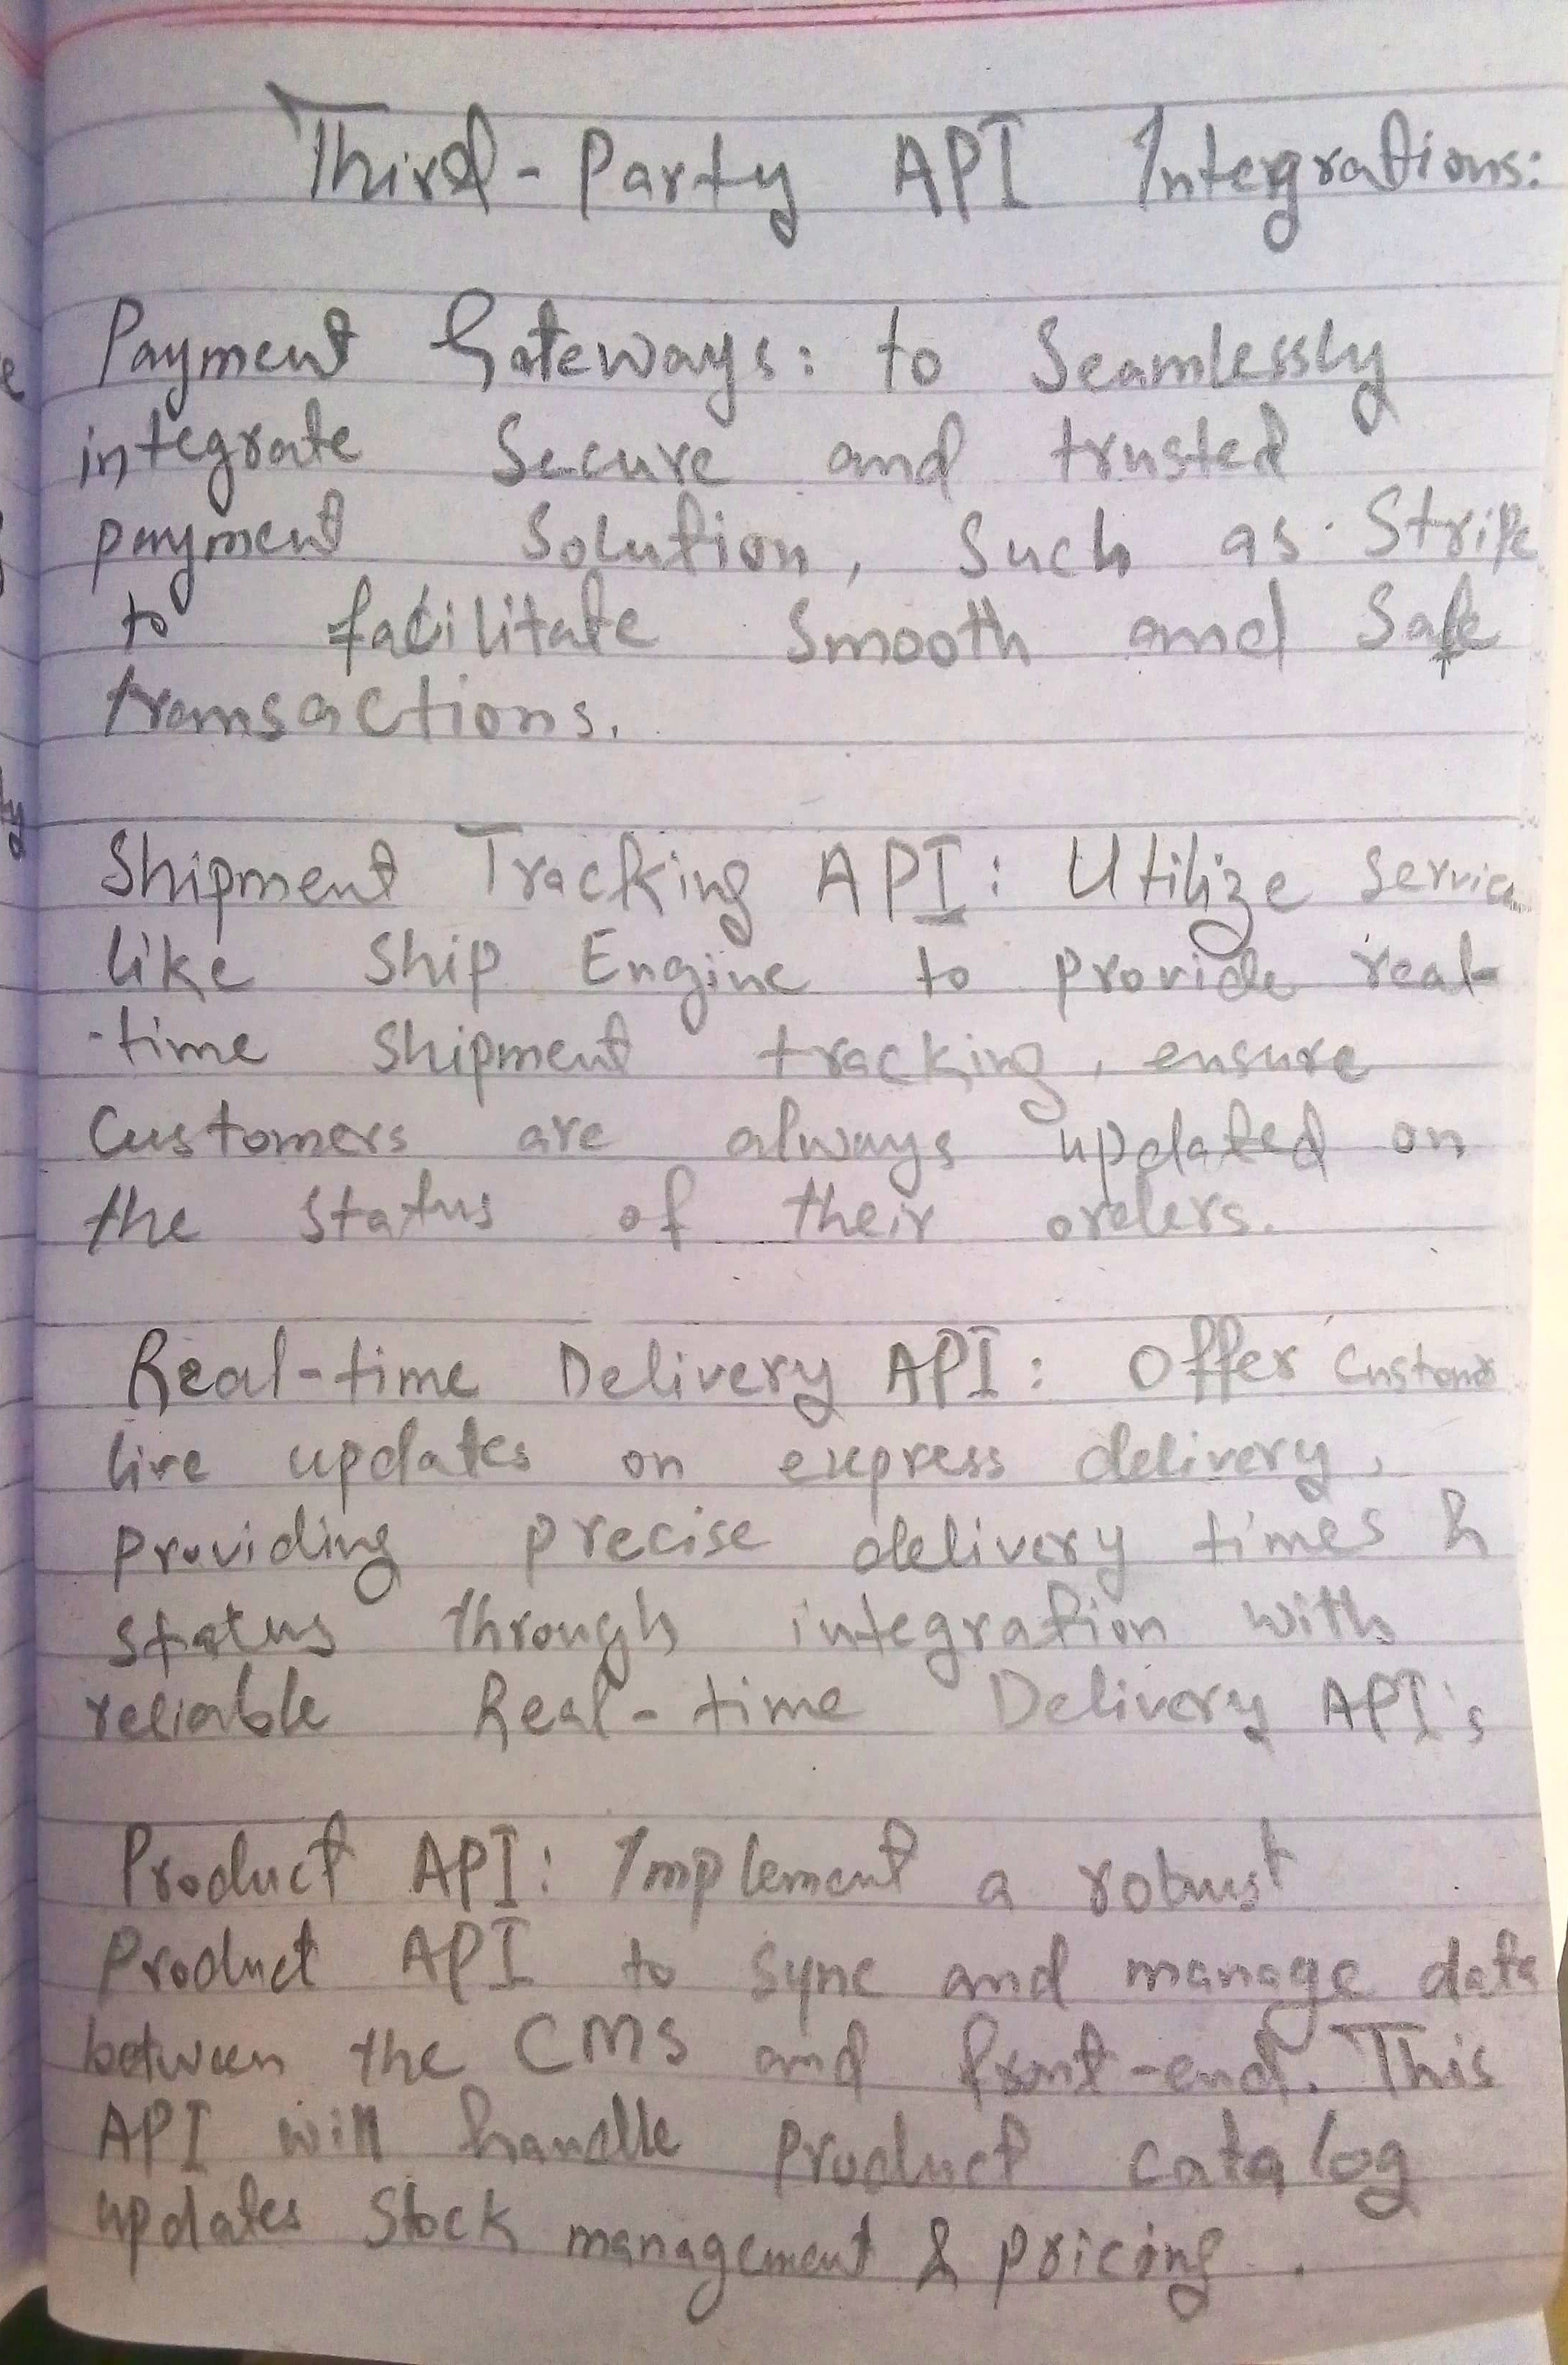 Third-Party API Integrations:
Payment Gateways: to Seamlessly
integrate Secure and trusted
payment Solution, Such as Stripe
to facilitate Smooth and Safe
transactions.
Shipment Tracking API: Utilize Service
like Ship Engine to provide real-
-time Shipment tracking, ensure
Customers are always updated on
the Status of their orders.
Real-time Delivery API: Offer Customer
live updates on express delivery,
providing precise delivery times &
status through integration with
reliable Real-time Delivery API's
Product API: Implement a robust
Product API to Sync and manage data
between the CMS and front-end. This
API will handle Product catalog
updates Stock management & pricing.